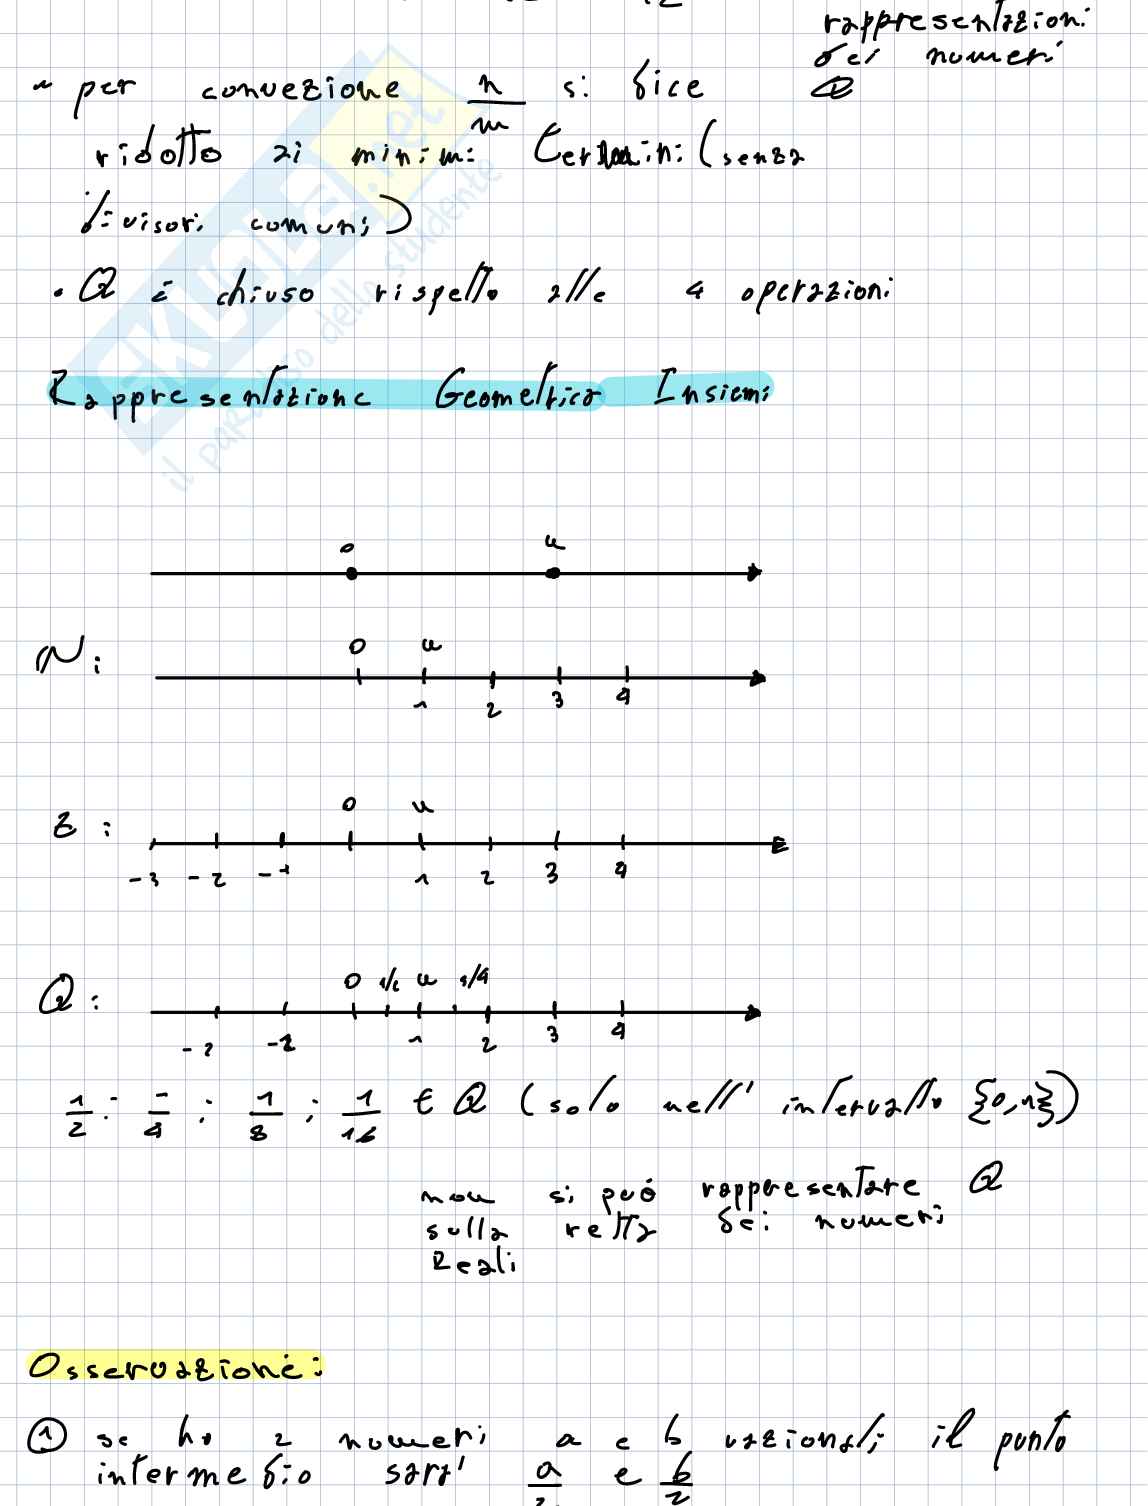 rappresentazioni
dei numeri
Q
~ per convezione n/m si dice
ridotto ai minimi termini (senza
divisori comuni)
• Q è chiuso rispetto alle 4 operazioni
Rappresentazione Geometrica Insiemi
0 u
N: 0 u
1 2 3 4
Z: 0 u
-3 -2 -1 1 2 3 4
Q: 0 1/2 u 1/4
-2 -1 1 2 3 4
1/2 ; 1/4 ; 1/8 ; 1/16 ∈ Q (solo nell' intervallo {0,1})
non si può rappresentare Q
sulla retta dei numeri
Reali
Osservazione:
① se ho 2 numeri a e b razionali il punto
intermedio sara' a/2 e b/2
SKUOLA.net
il paradiso dello studente